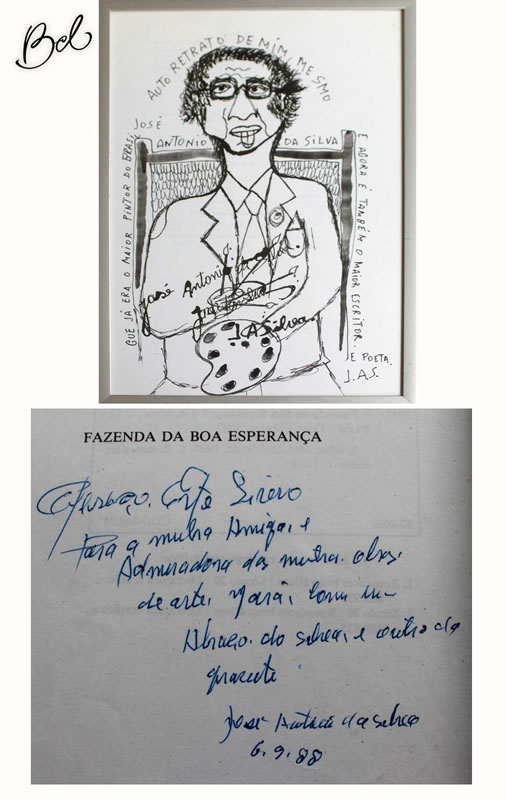 Bel
AUTO RETRATO DE MIM MESMO
JOSÉ
ANTONIO DA SILVA
QUE JÁ ERA O MAIOR PINTOR DO BRASIL
E AGORA É TAMBÉM O MAIOR ESCRITOR.
E POETA.
J.A.S.
José Antonio da
J.A.Silva
FAZENDA DA BOA ESPERANÇA
Ofereço. Este
Para a minha Amiga, e
Admiradora das minha obras
de arte, com um
Abraço do Silva, e outro do
José Antonio da Silva
6.9.88